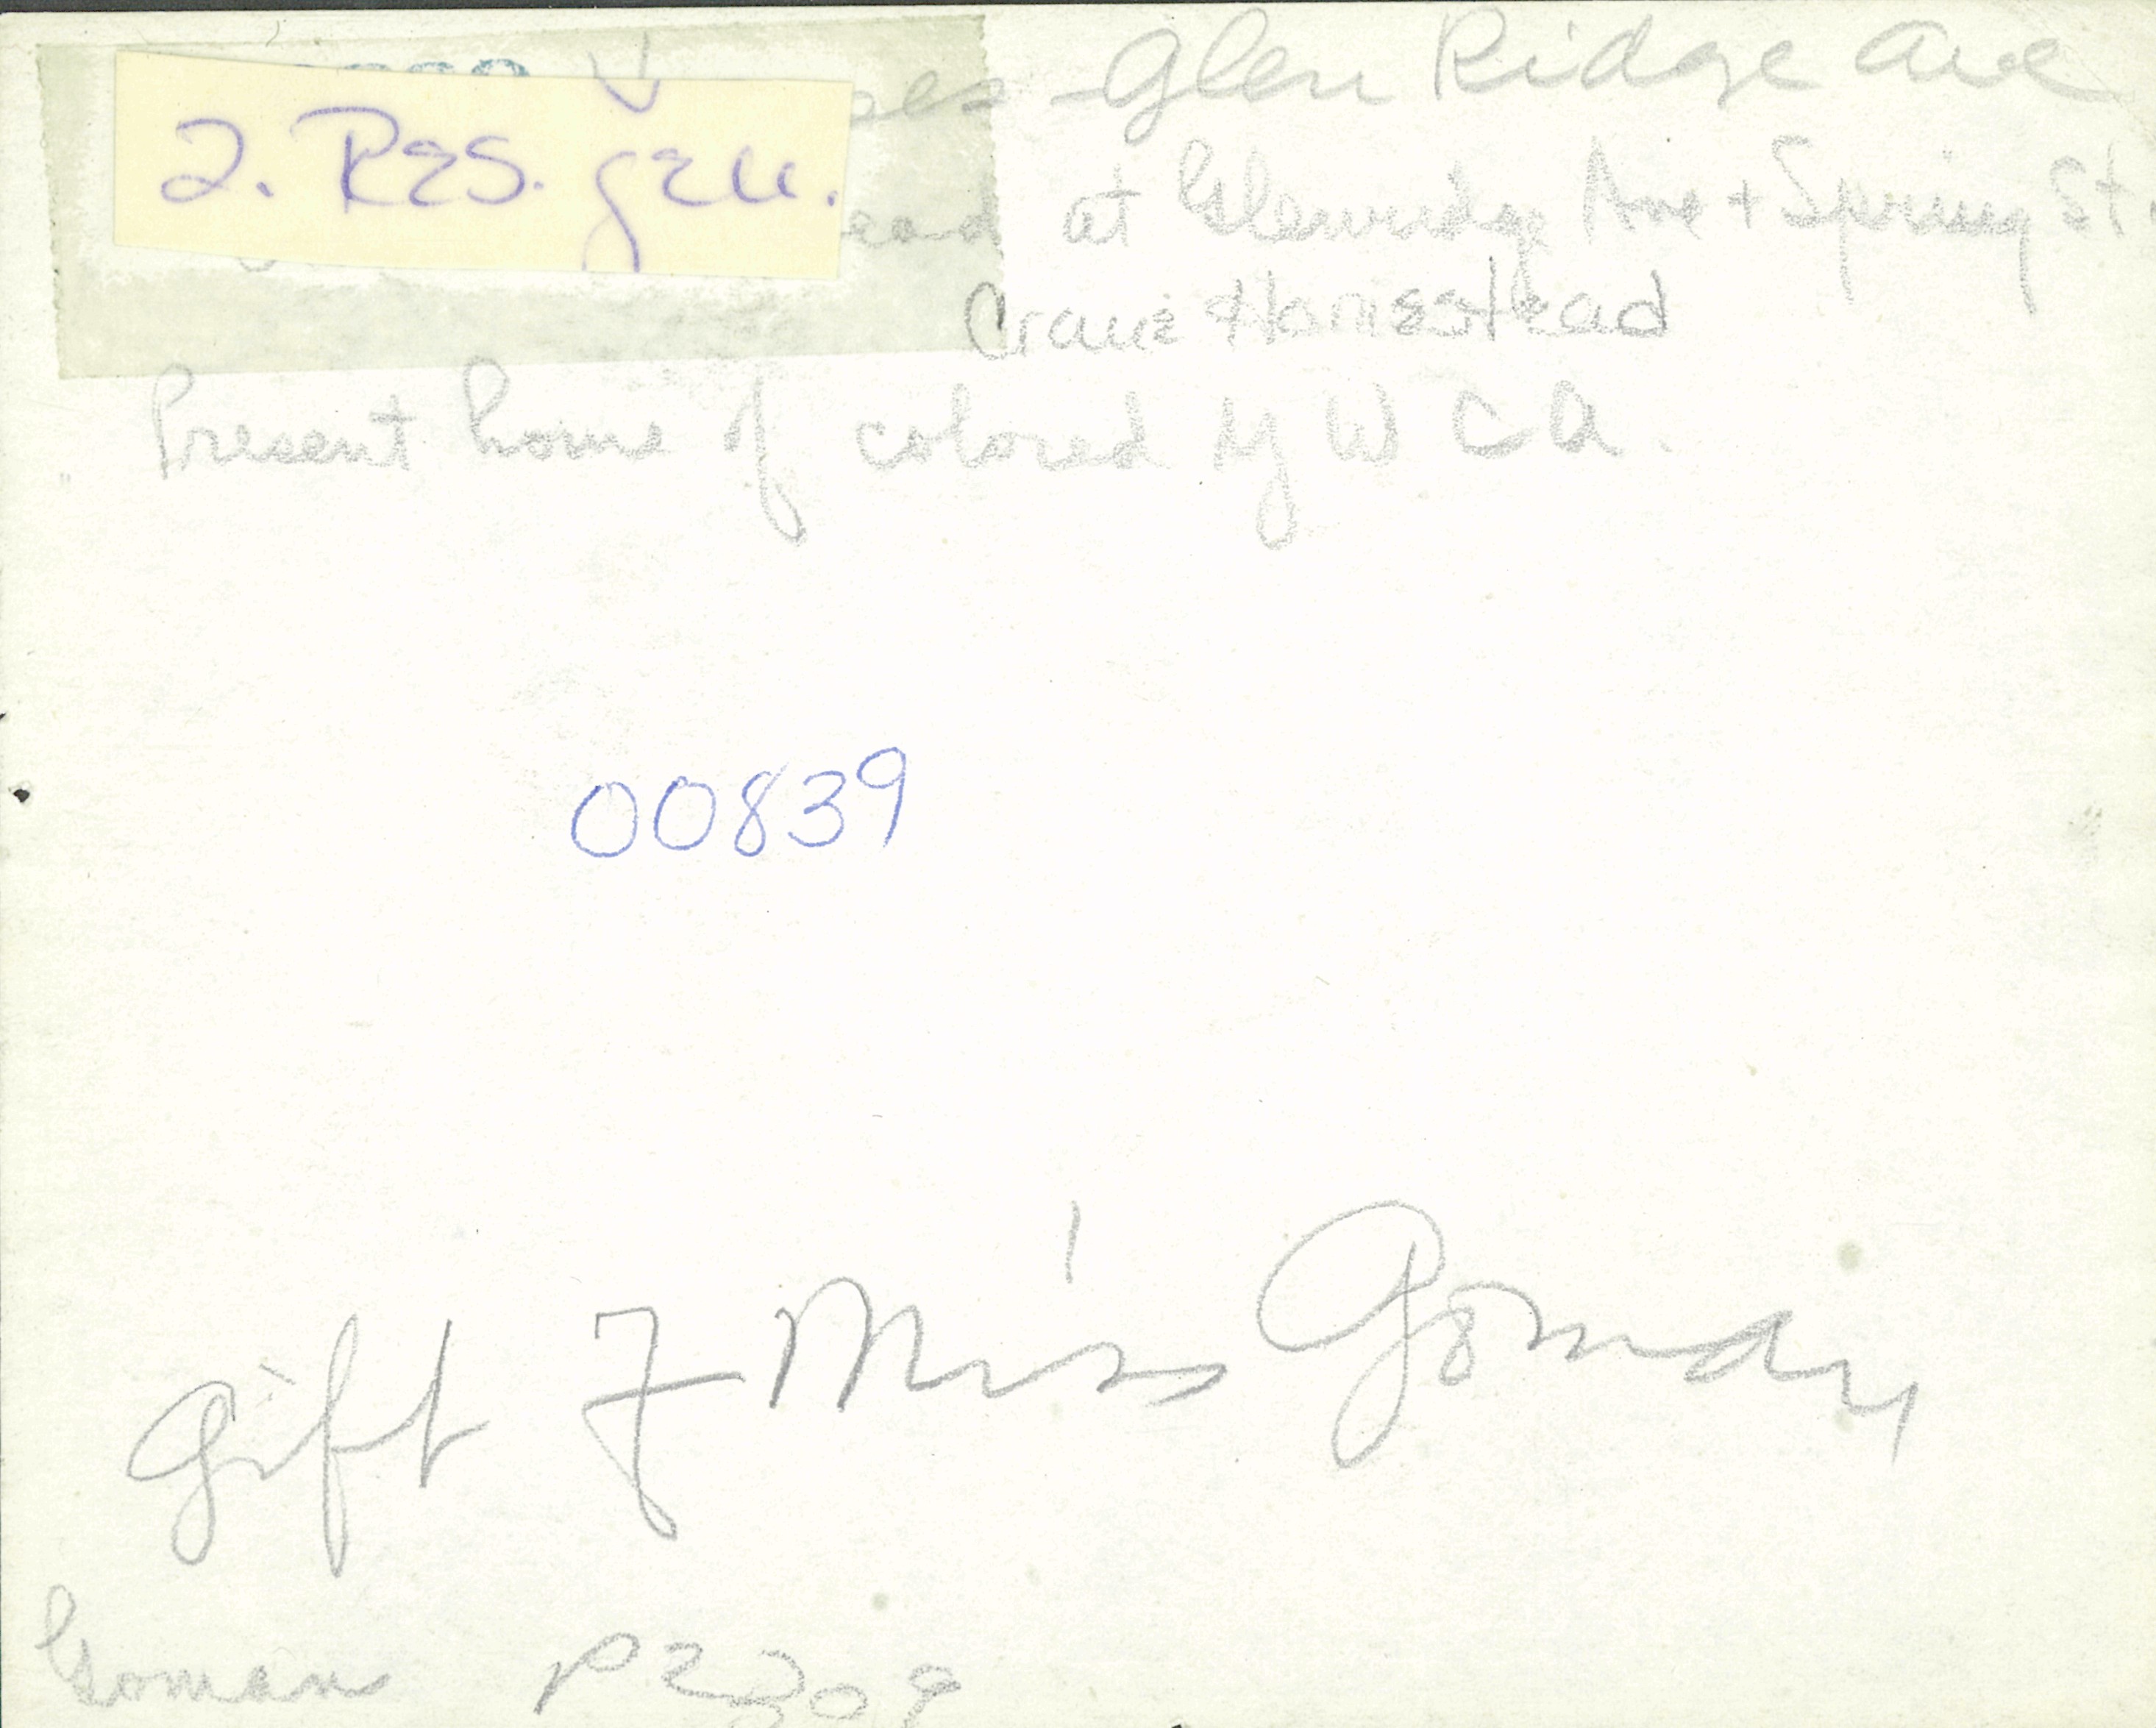 2. Res. gen.
- Glen Ridge Ave
at Glenridge Ave + Spring St.
Crane Homestead
Present home of colored Y W C A.
00839
Gift of Miss Goman
Goman